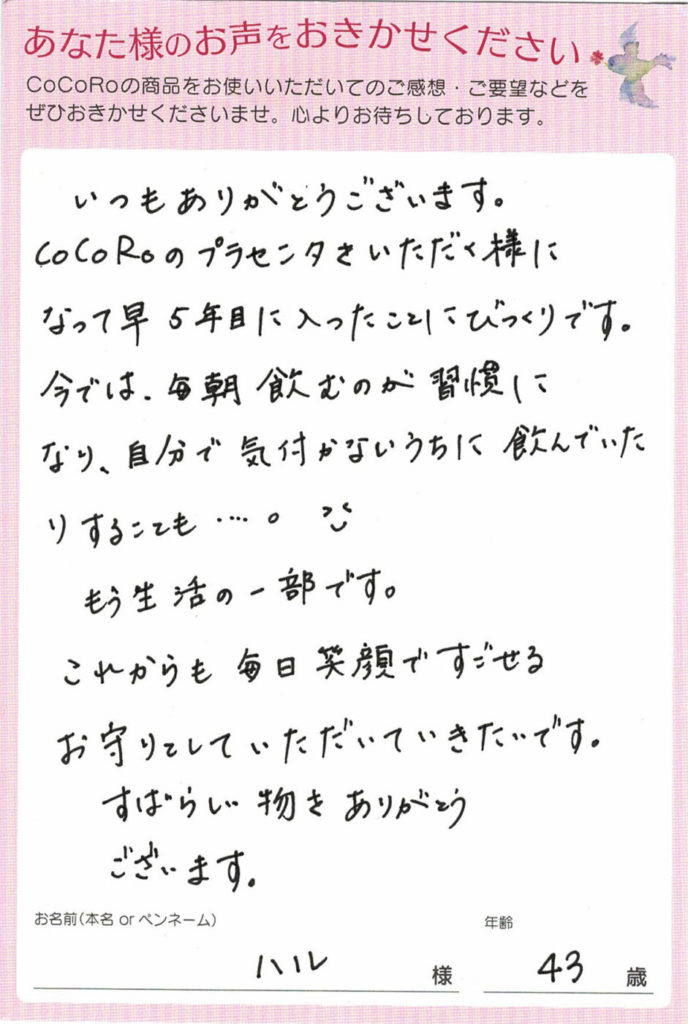 あなた様のお声をおきかせください
CoCoRoの商品をお使いいただいてのご感想・ご要望などを
ぜひおきかせくださいませ。心よりお待ちしております。
いつもありがとうございます。
CoCoRoのプラセンタをいただく様に
なって早５年目に入ったことにびっくりです。
今では、毎朝飲むのが習慣に
なり、自分で気付かないうちに飲んでいた
りすることも‥‥。
もう生活の一部です。
これからも毎日笑顔ですごせる
お守りとしていただいていきたいです。
すばらしい物をありがとう
ございます。
お名前(本名 or ペンネーム) 年齢
ハル 様 43 歳